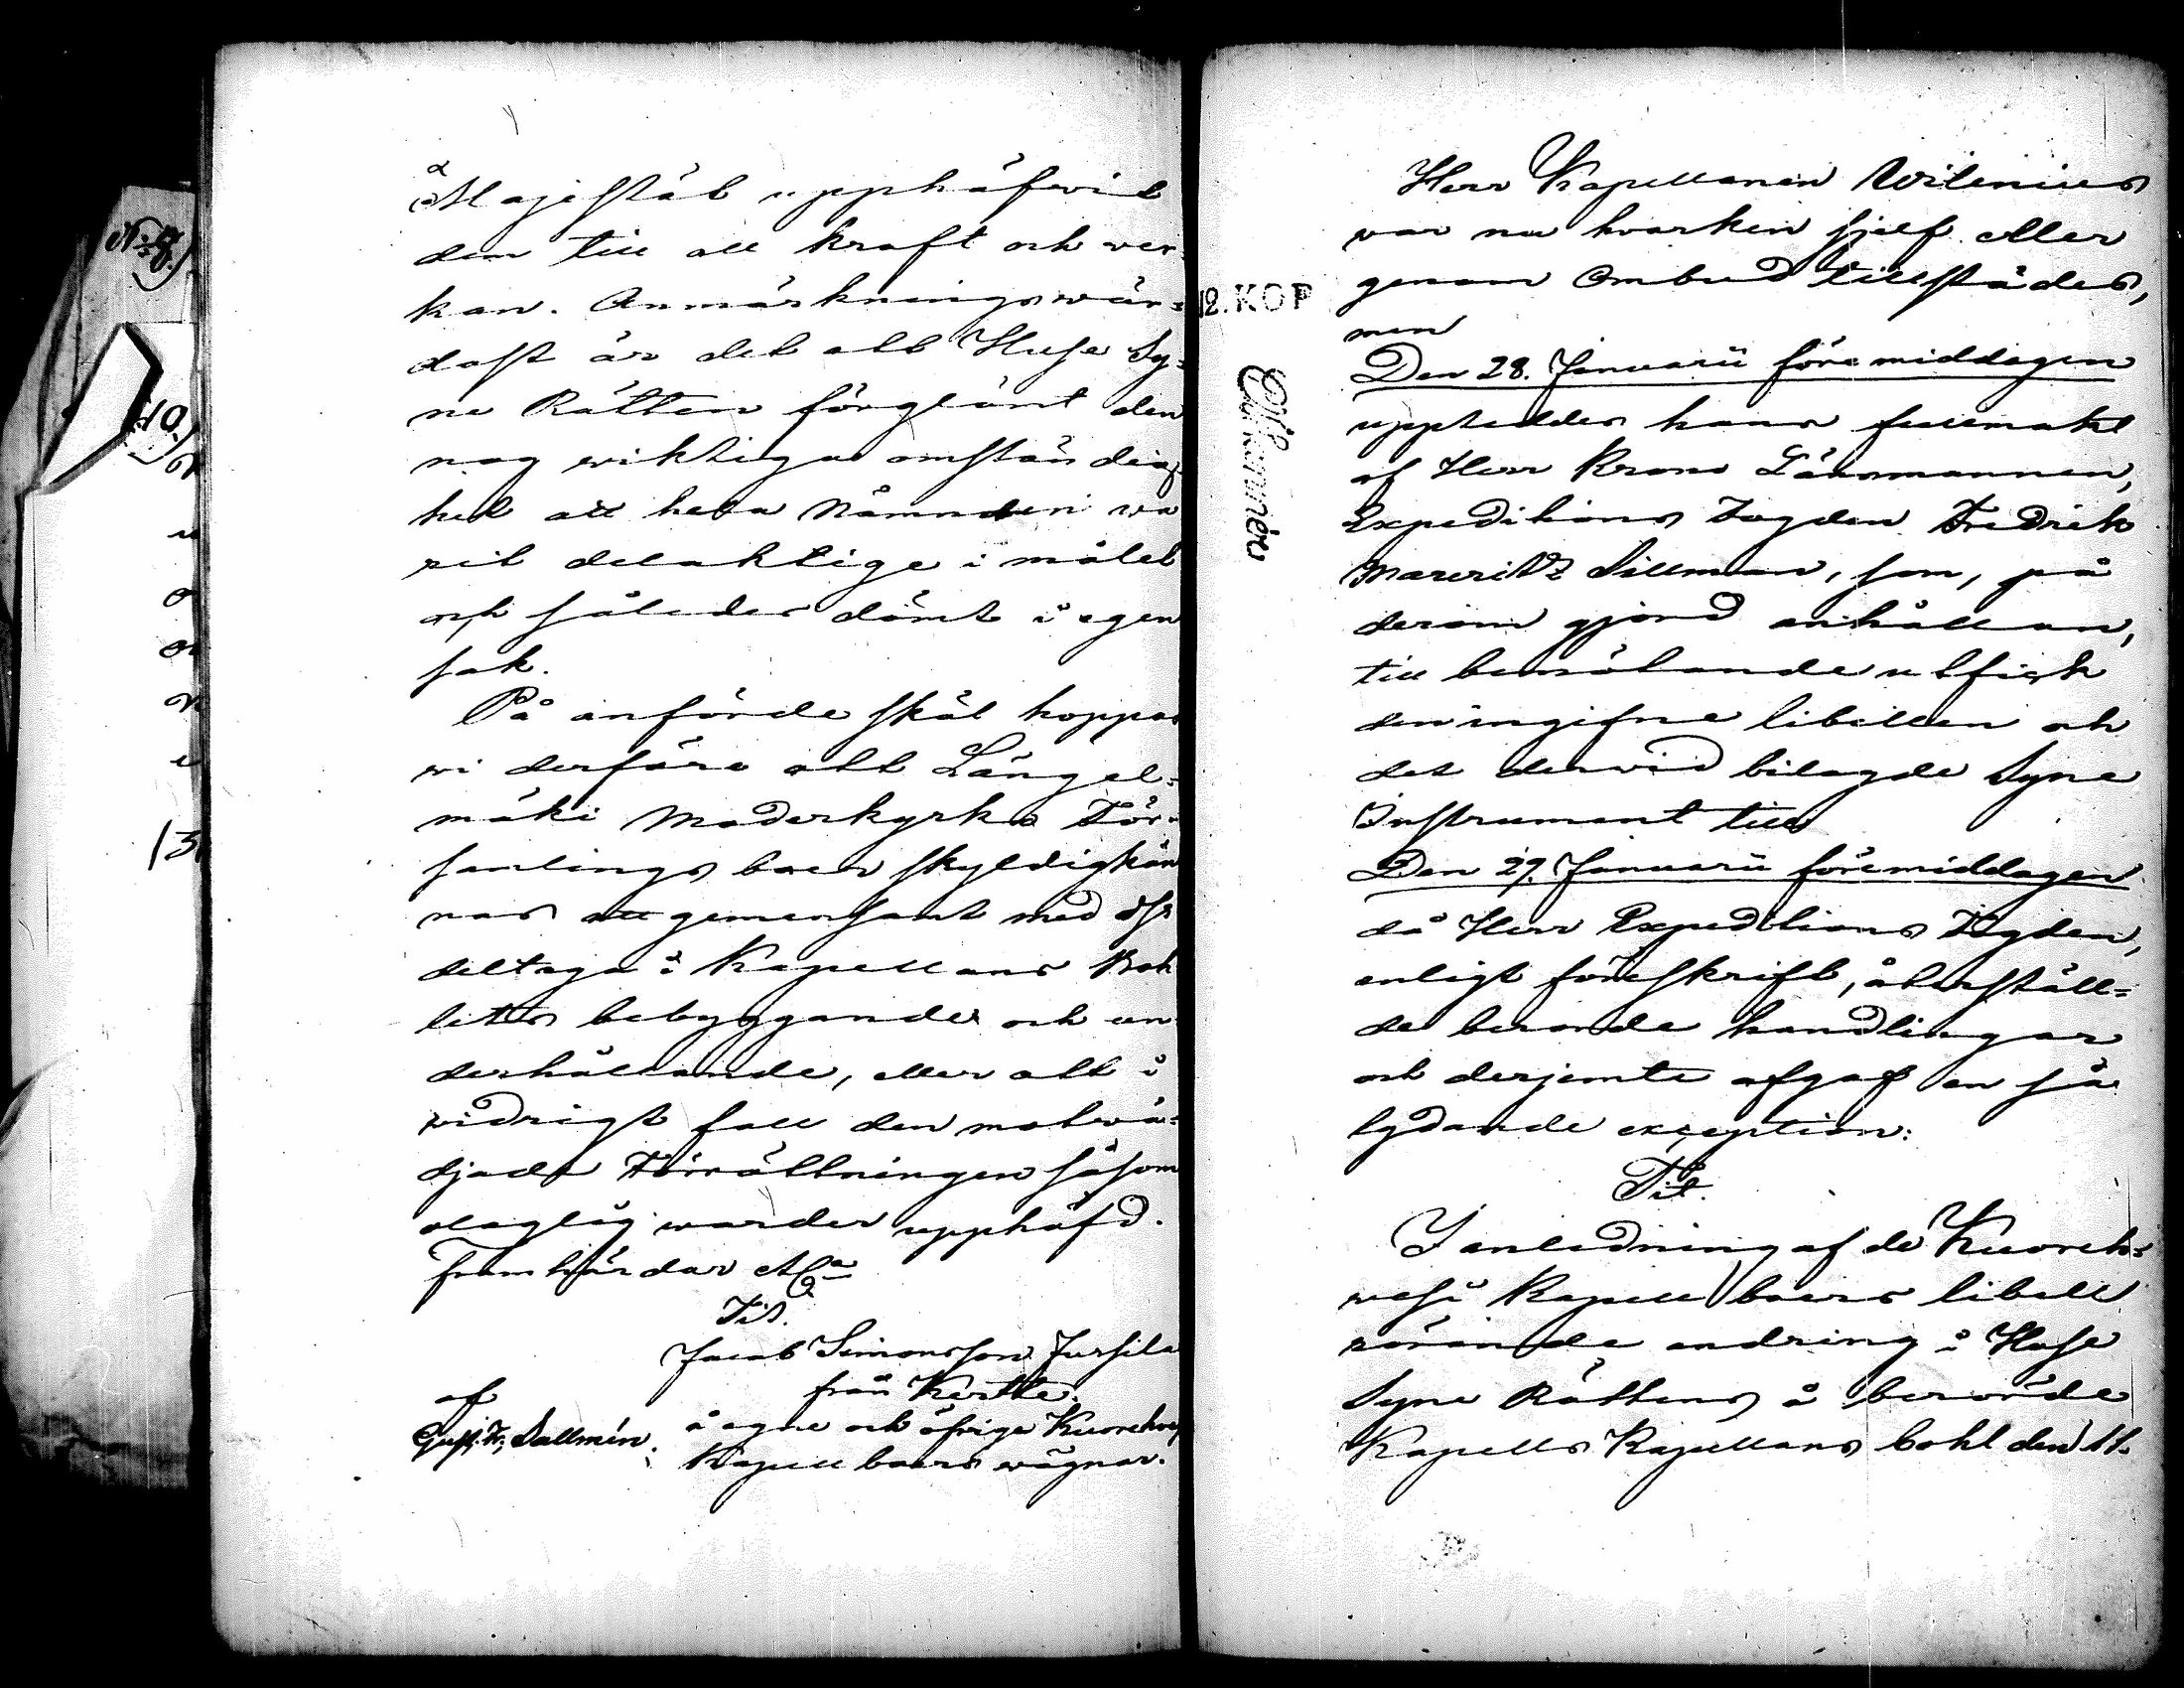 Majestät upphäfwit
den till all kraft och wer-
kan. Anmärkningswär-
dast är det att Huse Sy-
ne Rätten förglömt den
nog wiktiga omständig-
het att hela Nämnden wa
rit delaktige i målet
och således dömt i egen
sak.
På anförde skäl hoppas
wi derföre att Längel-
mäki Moderkyrko För-
samlings boer skyldigkän
nas att gemensamt med oss
deltaga i Kapellans Boh
lets bebyggande och un
derhållande, eller att i
widrigt fall den motwä-
djade Förrättningen såsom
olaglig warder upphäfd.
Framhärdar etc
Tit.
Jacob Simonsson Jussila
från Kertte.
af
Gust. Fr. Dallmén.
å egne och öfrige Kuorehwesi
Kapell boers wägnar.
12. KOP
Herr Kapellanen Wilenius
war nu hwarken sjelf eller
genom Ombud tillstädes,
men
Den 28. Januarii föremiddagen
uppteddes hans fullmakt
af Herr Krono Länsmannen,
Expeditions Fogden Fredrik
Mauritz Tillman, som, på
derom gjord anhållan,
till bemötande utfick
den ingifne libellen och
det derwid bilagde Syne
Instrument till
Den 29. Januarii föremiddagen
då Herr Expeditions Fogden,
enligt föreskrift, återställ-
de berörde handlingar
och derjemte afgaf en så
lydande exception:
Tit.
I anledning af de Kuoreh-
wesi Kapell boers libell
rörande ändring i Huse
Syne Rättens å berörde
Kapells Kapellans bohl den 11.